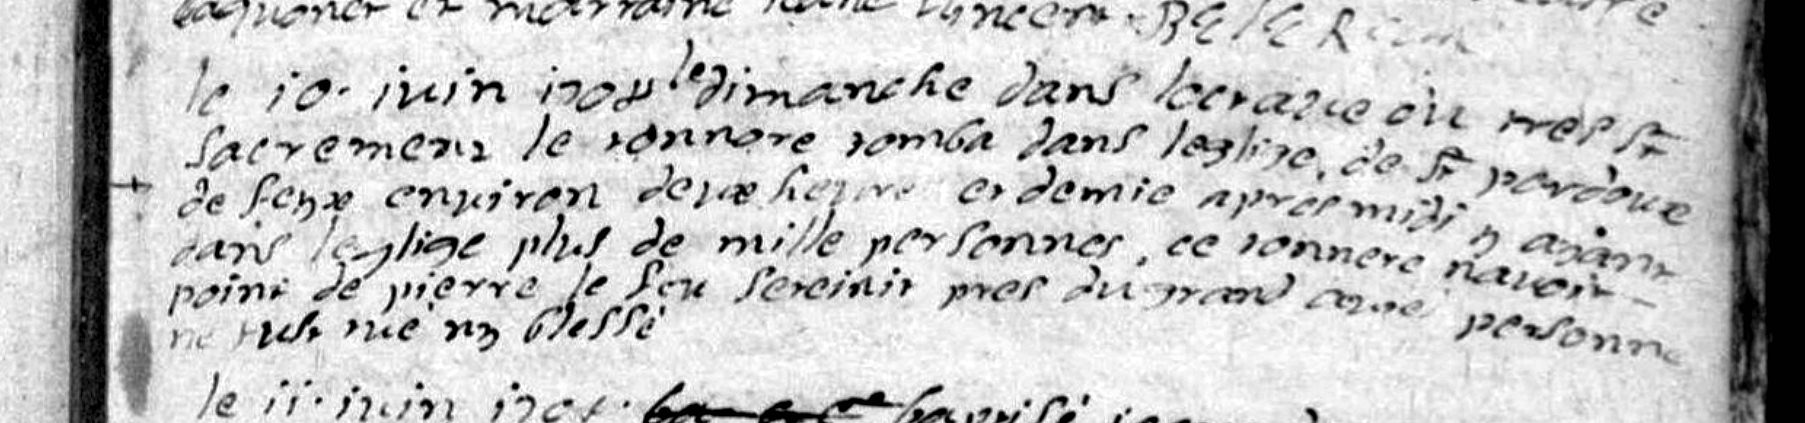 baquoner et marraine Jeane Vincent
le 10. iuin 1708 le dimanche dans loctaue du tres st
sacrement le tonnore tomba dans leglize, de st pardoux
de feyx enuiron deux heure et demie apres midi y aÿant
dans leglize plus de mille personnes, ce tonnere nauoit
point de pierre le feu seteinit pres du grand autel personne
ne fust tué ny blessé
le 11. iuin 170 baptisé